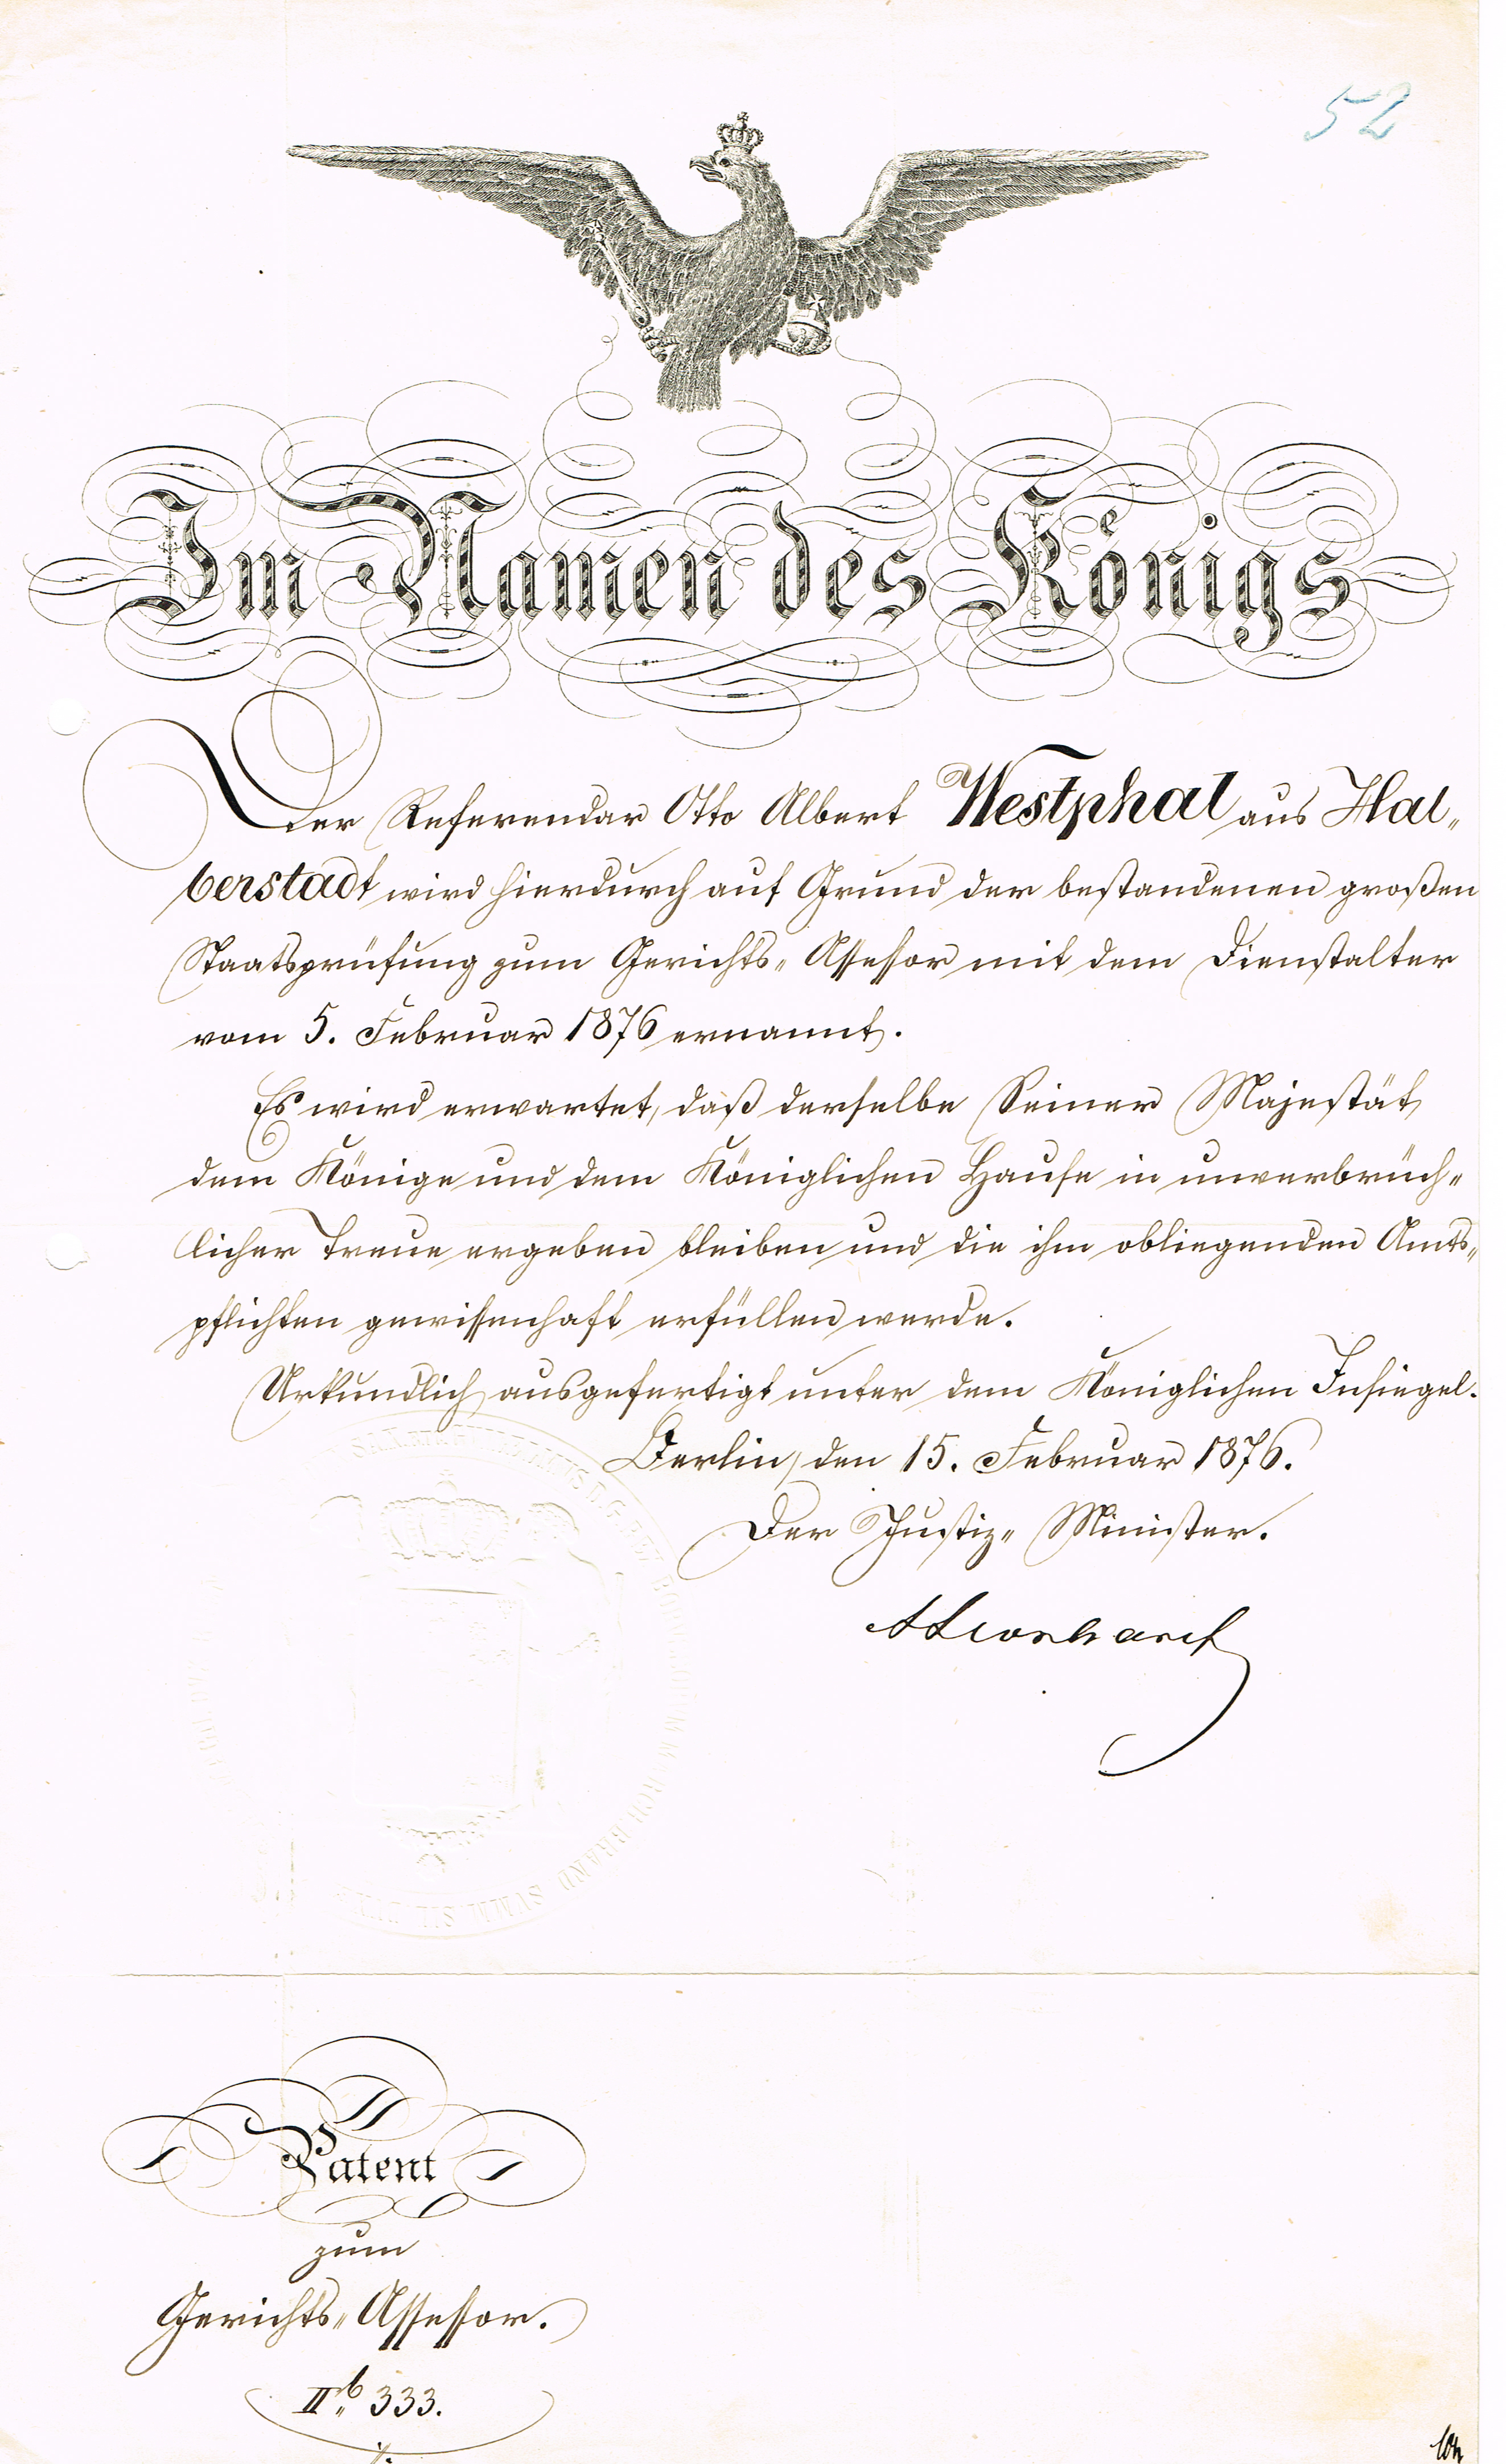 52
Im Namen des Königs
Der Referendar Otto Albert Westphal aus Hal„
berstadt wird hierdurch auf Grund der bestandenen großen
Staatsprüfung zum Gerichts„Assessor mit dem Dienstalter
vom 5. Februar 1876 ernannt.
Es wird erwartet, daß derselbe Seiner Majestät
dem Könige und dem Königlichen Hause in unverbrüch„
licher Treue ergeben bleiben und die ihm obliegenden Amts„
pflichten gewissenhaft erfüllen werde.
Urkundlich ausgefertigt unter dem Königlichen Insiegel.
Berlin, den 15. Februar 1876.
Der Justiz„Minister.
ALeonhardt
Patent
zum
Gerichts„Assessor.
II.b 333.